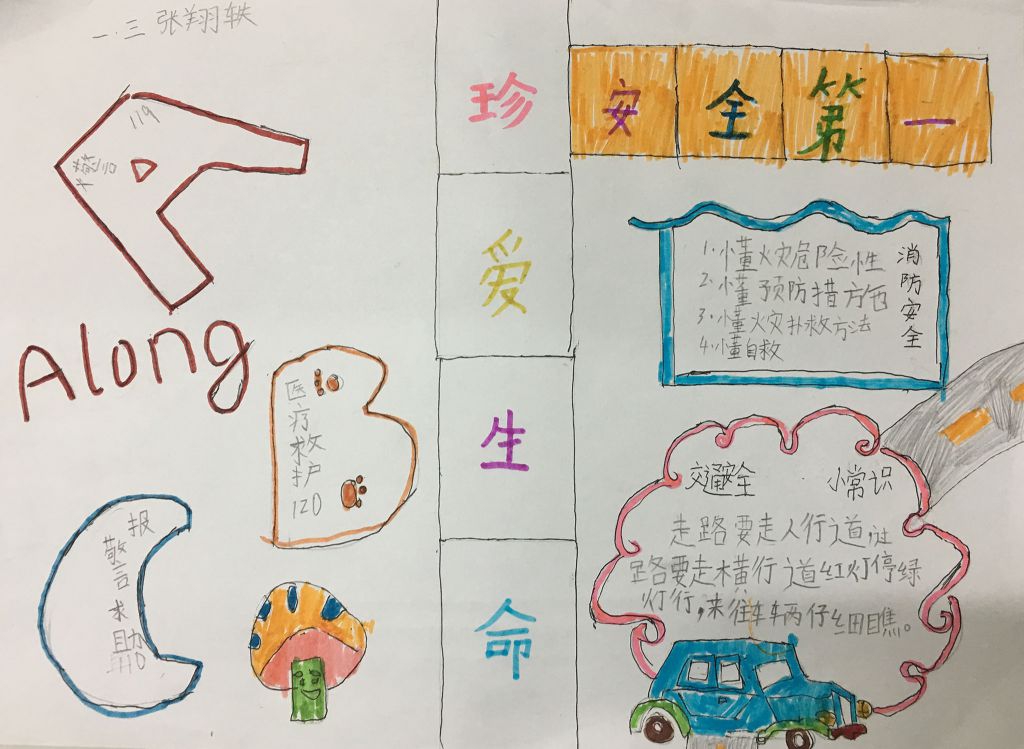 一.三 张翔轶
119
火警
Along
医疗救护
120
报警求助
110
珍爱生命
安全第一
消防安全
1.懂火灾危险性
2.懂预防措方包
3.懂火灾扑救方法
4.懂自救
交通安全 小常识
走路要走人行道,过
路要走横行道红灯停绿
灯行,来往车辆仔细瞧。